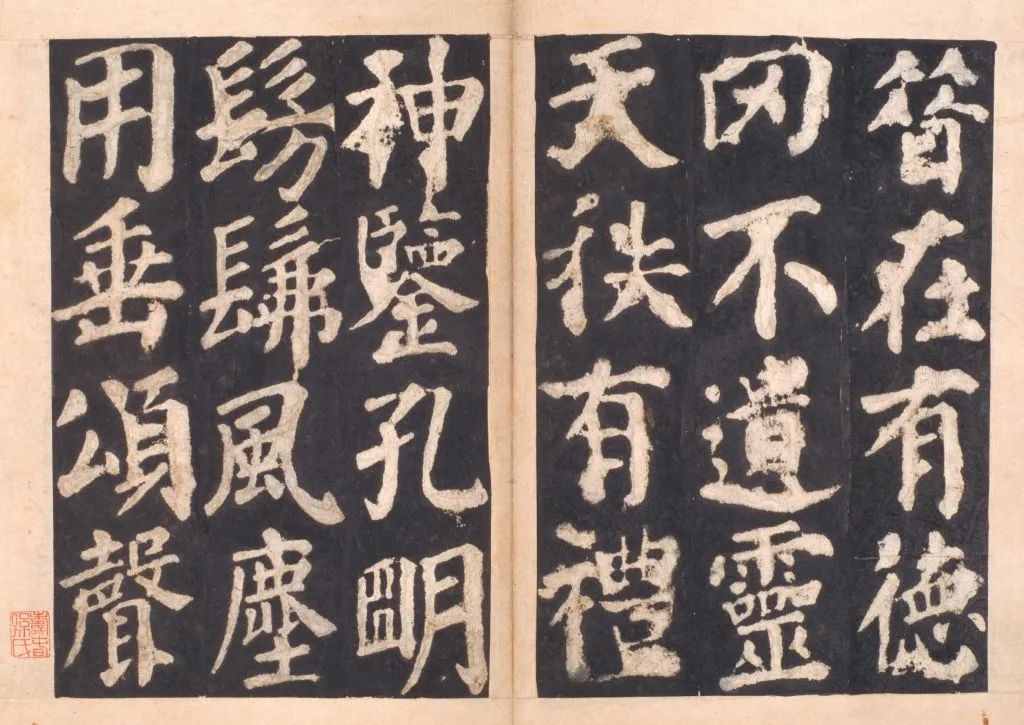 昔在有德
罔不遺靈
天秩有禮
神鑒孔明
髣髴風塵
用垂頌聲